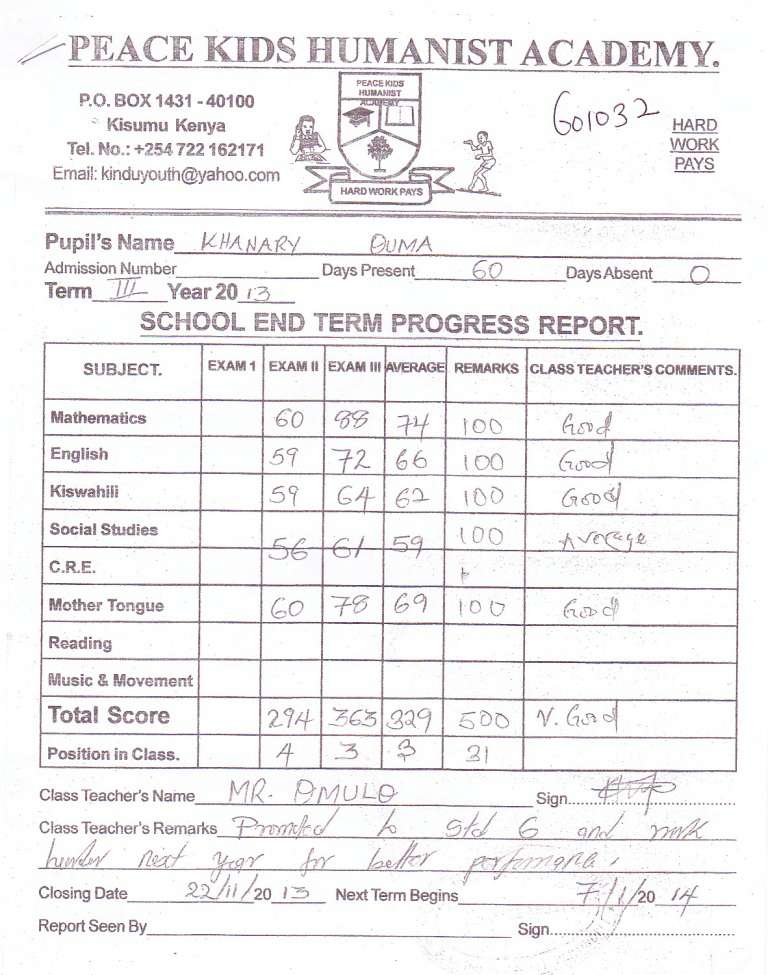 PEACE KIDS HUMANIST ACADEMY.
P.O. BOX 1431 - 40100
Kisumu Kenya
Tel. No.: +254 722 162171
Email: kinduyouth@yahoo.com
PEACE KIDS
HUMANIST
ACADEMY
HARD WORK PAYS
601032
HARD
WORK
PAYS
Pupil's Name KHANARY OUMA
Admission Number Days Present 60 Days Absent 0
Term III Year 20 13
SCHOOL END TERM PROGRESS REPORT.
SUBJECT. EXAM 1 EXAM II EXAM III AVERAGE REMARKS CLASS TEACHER'S COMMENTS.
Mathematics 60 88 74 100 Good
English 59 72 66 100 Good
Kiswahili 59 64 62 100 Good
Social Studies 56 61 59 100 Average
C.R.E.
Mother Tongue 60 78 69 100 Good
Reading
Music & Movement
Total Score 294 363 329 500 V. Good
Position in Class. 4 3 3 31
Class Teacher's Name MR. OMULO Sign
Class Teacher's Remarks Promoted to Std 6 and work
harder next year for better performance.
Closing Date 22/11/20 13 Next Term Begins 7/1/20 14
Report Seen By Sign